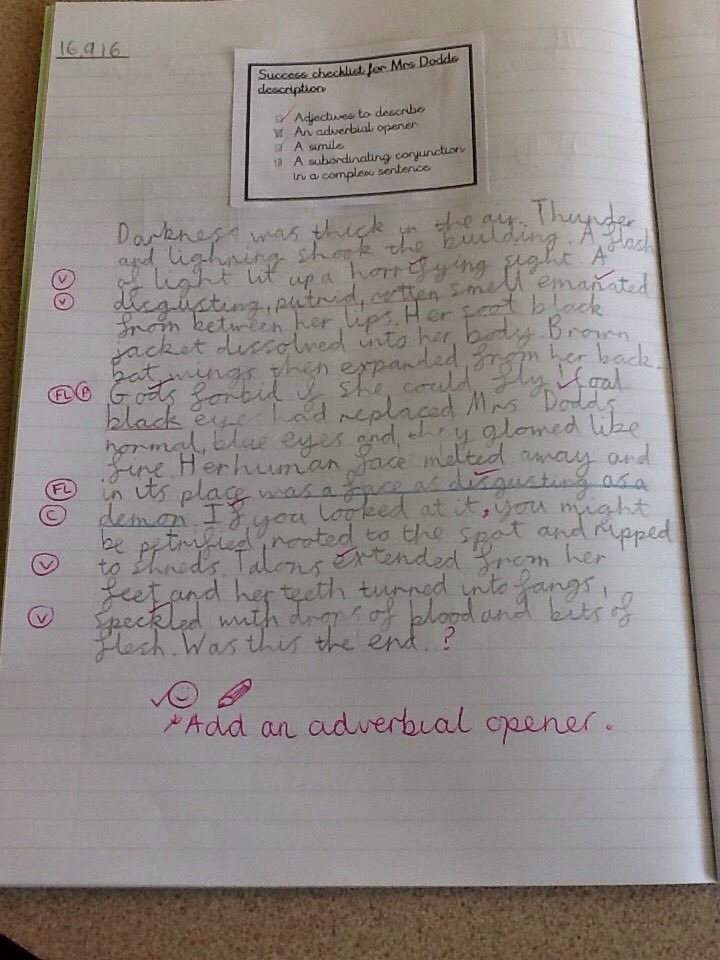 16.9.16
Success checklist for Mrs Dodds
description
Adjectives to describe
An adverbial opener
A simile
A subordinating conjunction
in a complex sentence
Darkness was thick in the air. Thunder
and lighning shook the building. A flash
V of light lit up a horrifying sight. A
V disgusting, putrid, rotten smell emanated
from between her lips. Her soot black
jacket dissolved into her body. Brown
bat wings then expanded from her back.
FL P Gods forbid if she could fly! Coal
black eyes had replaced Mrs Dodds
normal, blue eyes and they glowed like
fire. Her human face melted away and
FL in its place was a face as disgusting as a
C demon. If you looked at it, you might
be petrified, rooted to the spot and ripped
V to shreds. Talons extended from her
feet and her teeth turned into fangs,
V speckled with drops of blood and bits of
flesh. Was this the end..?
*Add an adverbial opener.